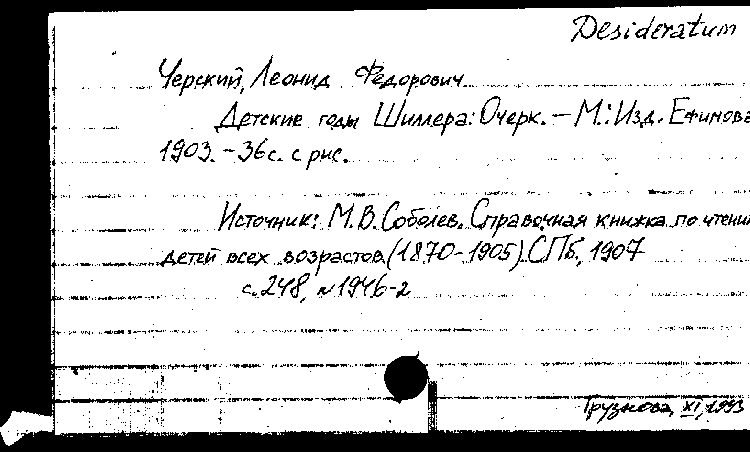 Desideratum
Черский, Леонид Федорович
Детские годы Шиллера: Очерк. – М.: Изд. Ефимова
1903. – 36 с. с рис.
Источник: М.В. Соболев. Справочная книжка по чтени
детей всех возрастов (1870-1905) СПб., 1907
с. 248, № 1946-2
Грузнова, XI, 1993